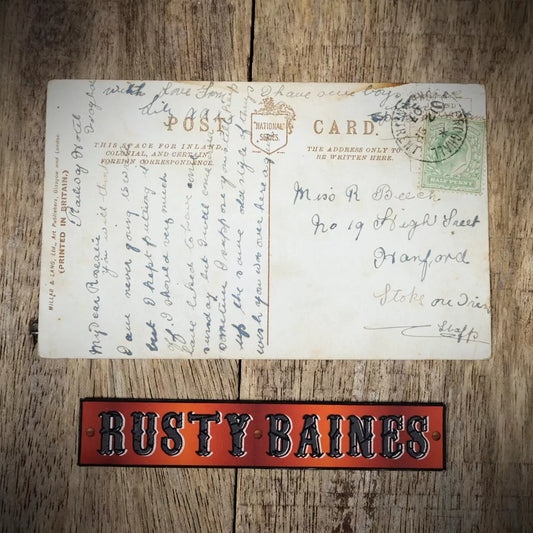 with love from
I have some boys
POST CARD.
"NATIONAL" SERIES.
THIS SPACE FOR INLAND,
COLONIAL, AND CERTAIN
FOREIGN CORRESPONDENCE.
THE ADDRESS ONLY TO
BE WRITTEN HERE.
HALFPENNY
Miss R Beech
No 19 High Street
Hanford
Stoke on Trent
Staff
MILLAR & LANG, Ltd., Art Publishers, Glasgow and London.
(PRINTED IN BRITAIN.)
Railway Hotel
My Dear
You will think
I am never going to
but I kept putting it
off. I should very much
have liked to have come
Sunday but I will come
sometime I suppose you are
up the same old
wish you were over here
RUSTY BAINES